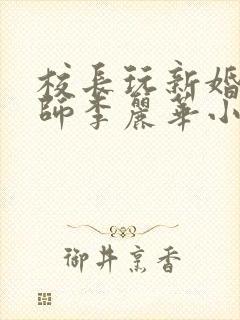 校長玩新婚
師李麗華小
御井烹香